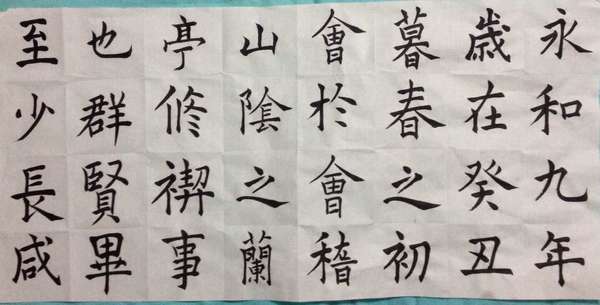 永和九年
歳在癸丑
暮春之初
會於會稽
山陰之蘭
亭修禊事
也群賢畢
至少長咸